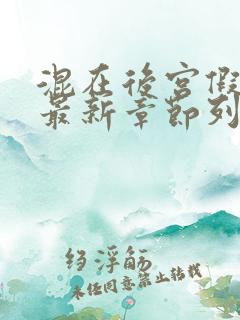 混在後宮假
最新章節列
绉浮觞
未经同意禁止转载